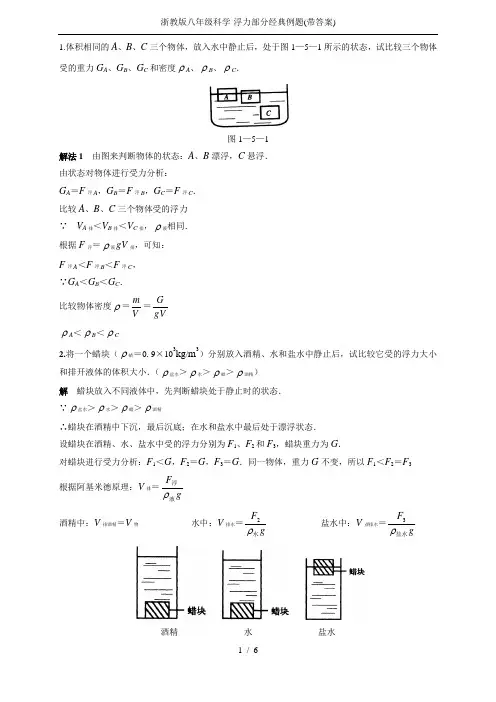 浙教版八年级科学 浮力部分经典例题(带答案)
1.体积相同的 A、B、C 三个物体，放入水中静止后，处于图 1—5—1 所示的状态，试比较三个物体
受的重力 G_A、G_B、G_C 和密度ρ_A、ρ_B、ρ_C．
A B C
图 1—5—1
解法 1 由图来判断物体的状态：A、B 漂浮，C 悬浮．
由状态对物体进行受力分析：
G_A＝F浮A，G_B＝F浮B，G_C＝F浮C．
比较 A、B、C 三个物体受的浮力
∵ V_A排＜V_B排＜V_C排，ρ液相同．
根据 F浮＝ρ液gV排，可知：
F浮A＜F浮B＜F浮C，
∵G_A＜G_B＜G_C．
比较物体密度ρ＝m/V＝G/gV
ρ_A＜ρ_B＜ρ_C
2.将一个蜡块（ρ蜡＝0. 9×10³kg/m³）分别放入酒精、水和盐水中静止后，试比较它受的浮力大小
和排开液体的体积大小．（ρ盐水＞ρ水＞ρ蜡＞ρ酒精）
解 蜡块放入不同液体中，先判断蜡块处于静止时的状态．
∵ρ盐水＞ρ水＞ρ蜡＞ρ酒精
∴蜡块在酒精中下沉，最后沉底；在水和盐水中最后处于漂浮状态．
设蜡块在酒精、水、盐水中受的浮力分别为 F₁、F₂ 和 F₃，蜡块重力为 G．
对蜡块进行受力分析：F₁＜G，F₂＝G，F₃＝G．同一物体，重力 G 不变，所以 F₁＜F₂＝F₃
根据阿基米德原理：V排＝F浮/ρ液g
酒精中：V排酒精＝V物 水中：V排水＝F₂/ρ水g 盐水中：V排盐水＝F₃/ρ盐水g
蜡块 蜡块 蜡块
酒精 水 盐水
1 / 6